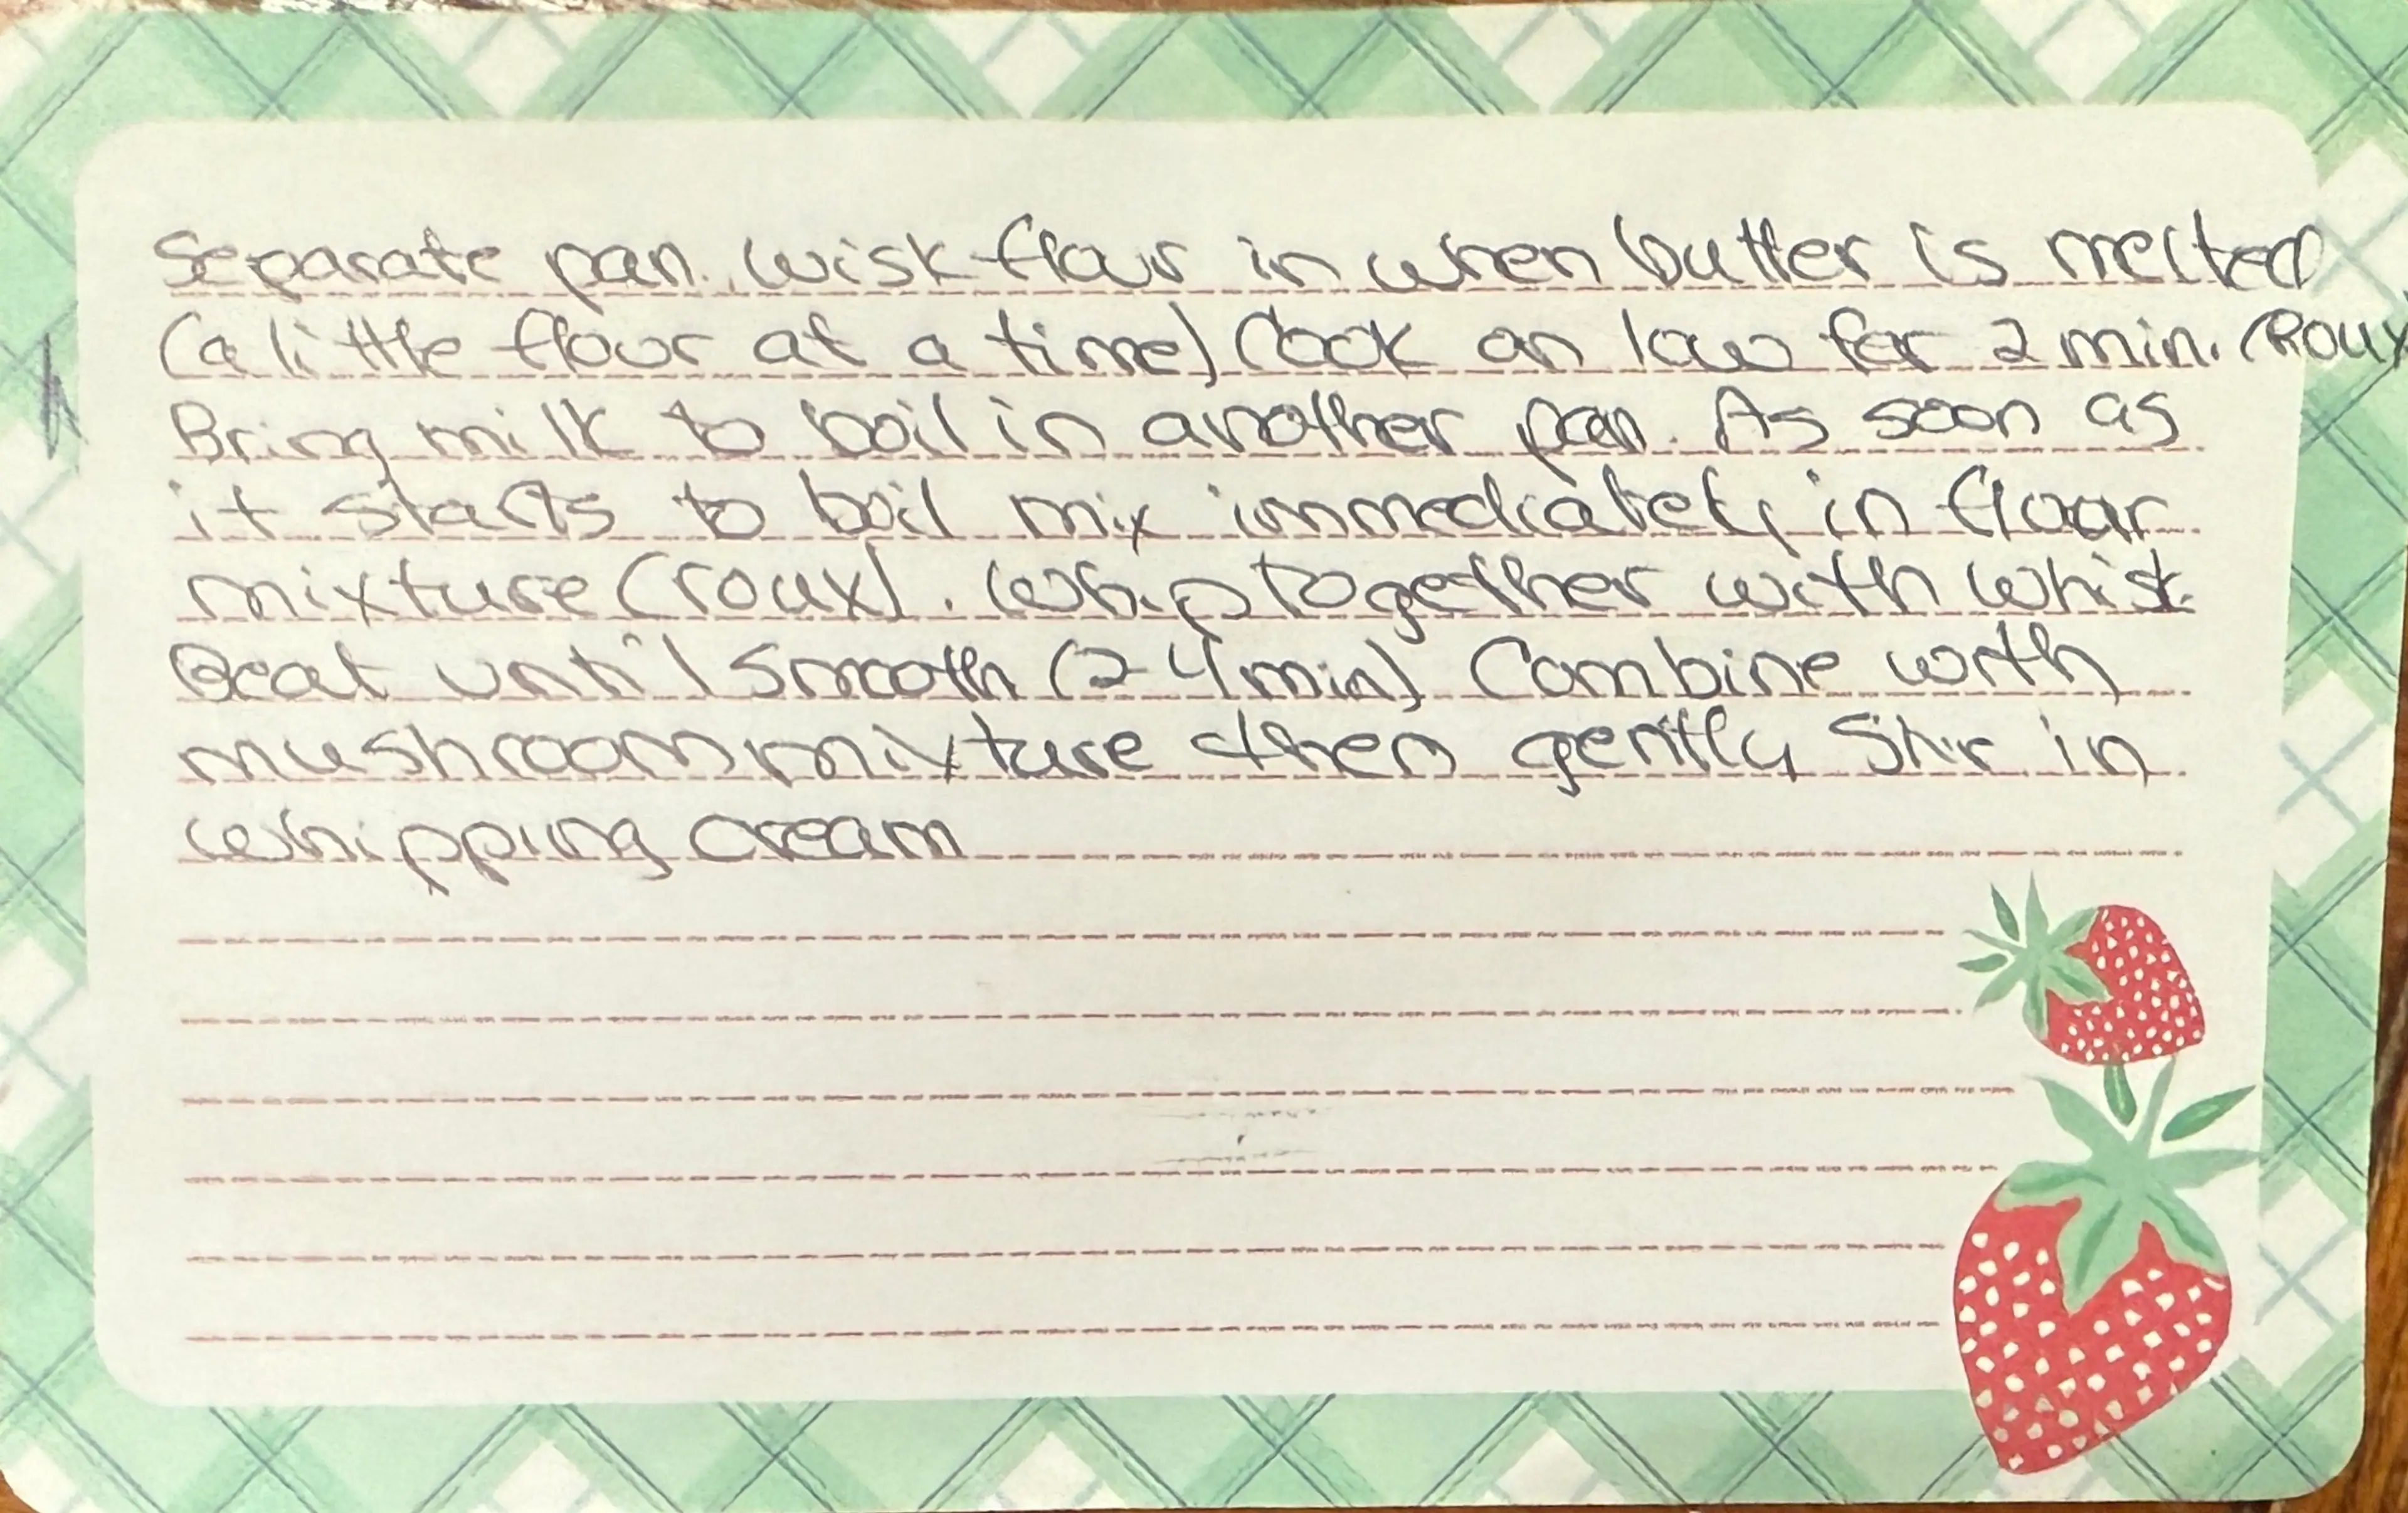 Separate pan. Wisk flour in when butter is melted
(a little flour at a time) Cook on low for 2 min. (Roux
Bring milk to boil in another pan. As soon as
it starts to boil mix immediately in flour
mixture (roux). Whip together with whisk.
Beat until smooth (2-4 min) Combine with
mushroom mixture then gently stir in
whipping cream